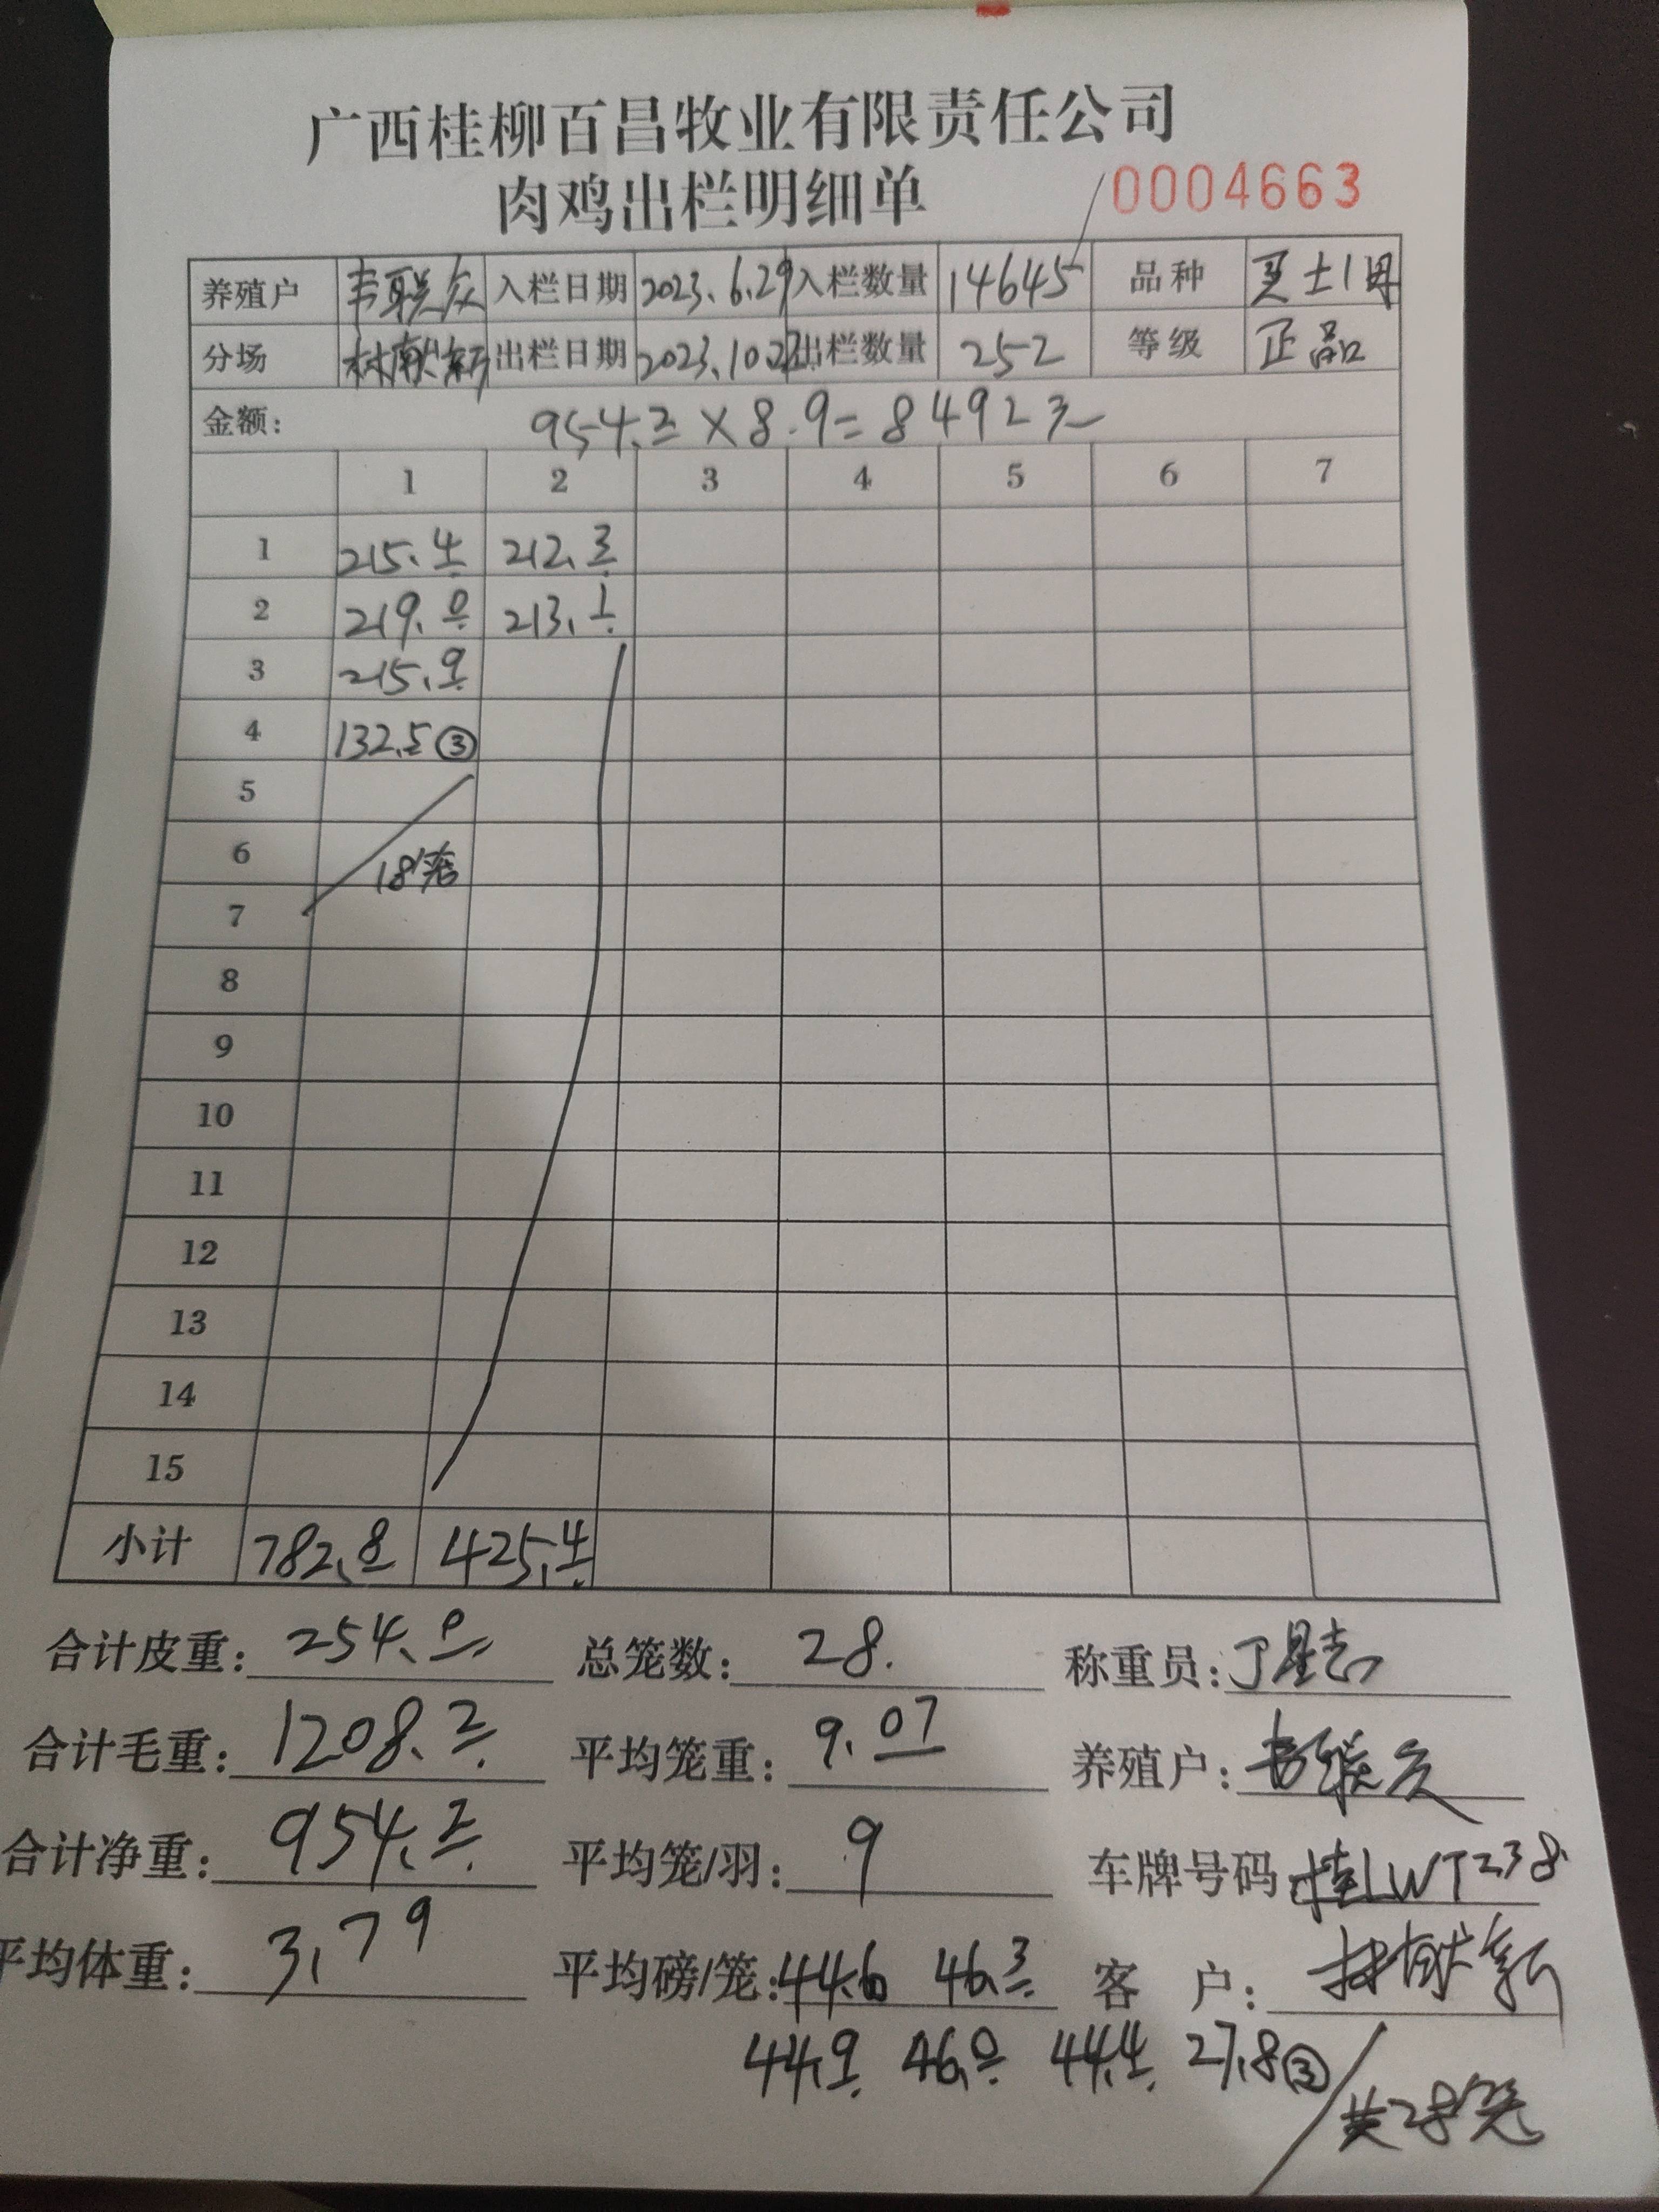 广西桂柳百昌牧业有限责任公司
肉鸡出栏明细单 0004663
养殖户 韦联众 入栏日期 2023.6.29 入栏数量 14645 品种 土1母
分场 出栏日期 2023.10.23 出栏数量 252 等级 正品
金额: 954.2×8.9=8492元
1 2 3 4 5 6 7
1 215.4 212.3
2 219.0 213.1
3 215.9
4 132.5③
5
6 18笼
7
8
9
10
11
12
13
14
15
小计 782.8 425.4
合计皮重: 254.0 总笼数: 28. 称重员:
合计毛重: 1208.2 平均笼重: 9.07 养殖户: 韦联众
合计净重: 954.2 平均笼/羽: 9 车牌号码 桂LWT238
平均体重: 3.79 平均磅/笼: 44.6 46.3 客 户:
44.9 46.0 44.4 27.8③
共28笼